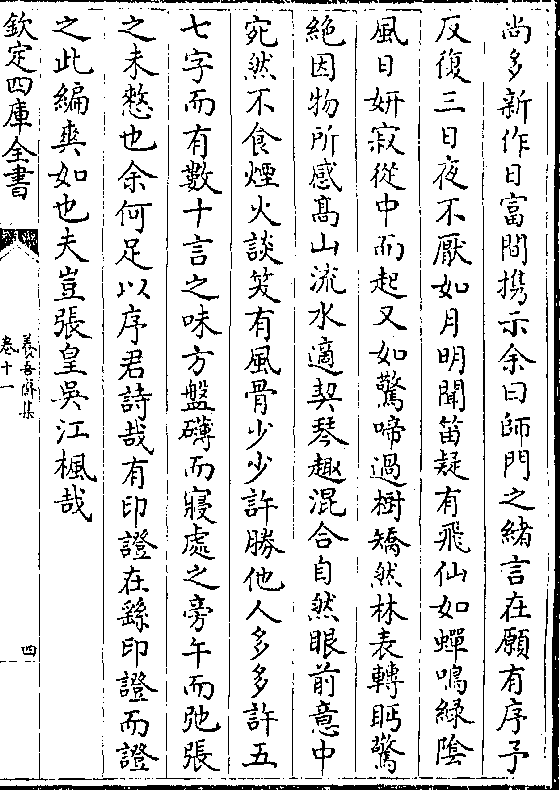 尚多新作日富間携示余曰師門之緒言在願有序予
反復三日夜不厭如月明聞笛疑有飛仙如蟬鳴緑陰
風日妍寂從中而起又如驚啼過樹矯然林表轉眄驚
絶因物所感髙山流水適契琴趣混合自然眼前意中
宛然不食煙火談笑有風骨少少許勝他人多多許五
七字而有數十言之味方盤礴而寢處之旁午而弛張
之未憗也余何足以序君詩哉有印證在繇印證而證
之此編爽如也夫豈張皇吳江楓哉
欽定四庫全書
養吾齋集
卷十一
四